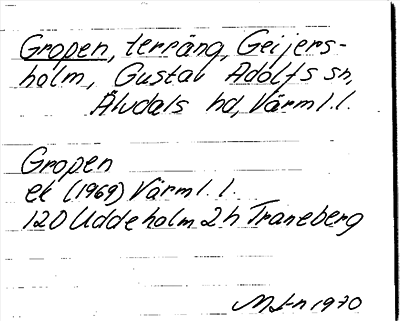 Gropen, terräng, Geijers-
holm, Gustav Adolfs sn,
Älvdals hd, Värml. l.
Gropen
ek (1969) Värml. l.
12D Uddeholm 2h Traneberg
1970